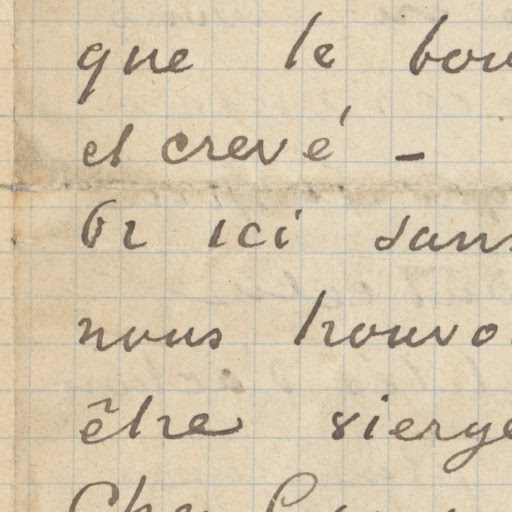 que le bou
et crevé -
Or ici sans
nous trouvo
être vierge
Cher